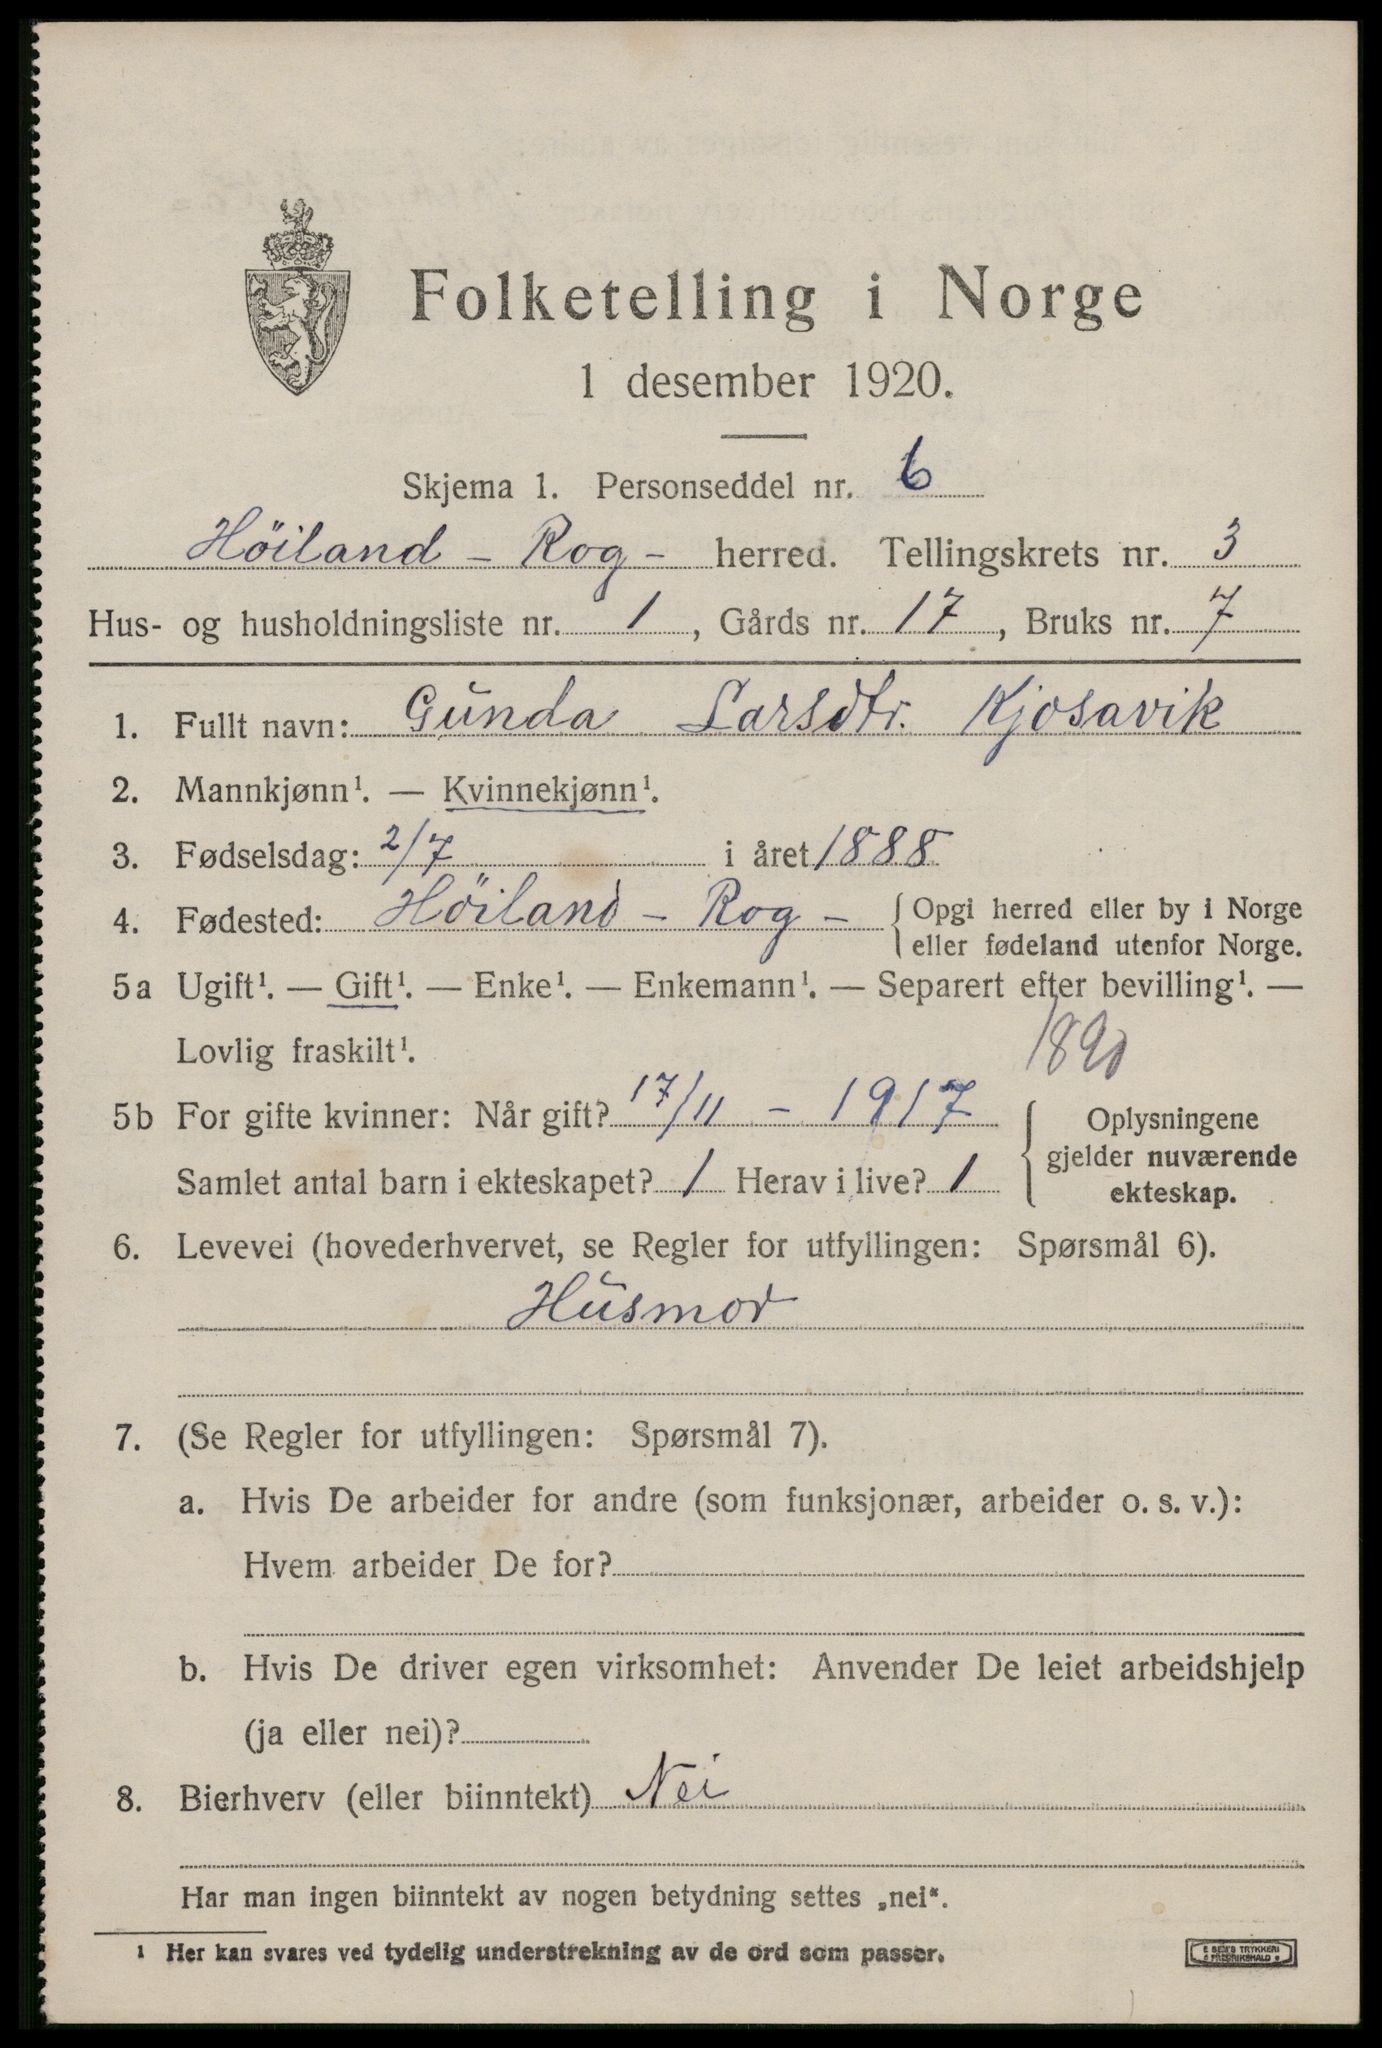 Folketelling i Norge
1 desember 1920.
Skjema 1. Personseddel nr. 6
Höiland - Rog - herred. Tellingskrets nr. 3
Hus- og husholdningsliste nr. 1, Gårds nr. 17, Bruks nr. 7
1. Fullt navn: Gunda Larsdtr. Kjosavik
2. Mannkjønn¹. — Kvinnekjønn¹.
3. Fødselsdag: 2/7 i året 1888
4. Fødested: Höiland - Rog - { Opgi herred eller by i Norge
eller fødeland utenfor Norge.
5a Ugift¹. — Gift¹. — Enke¹. — Enkemann¹. — Separert efter bevilling¹. —
Lovlig fraskilt¹. 1890
5b For gifte kvinner: Når gift? 17/11 - 1917 { Oplysningene
gjelder nuværende
Samlet antal barn i ekteskapet? 1 Herav i live? 1 ekteskap.
6. Levevei (hovederhvervet, se Regler for utfyllingen: Spørsmål 6).
Husmor
7. (Se Regler for utfyllingen: Spørsmål 7).
a. Hvis De arbeider for andre (som funksjonær, arbeider o. s. v.):
Hvem arbeider De for?
b. Hvis De driver egen virksomhet: Anvender De leiet arbeidshjelp
(ja eller nei)?
8. Bierhverv (eller biinntekt) Nei
Har man ingen biinntekt av nogen betydning settes „nei“.
¹ Her kan svares ved tydelig understrekning av de ord som passer.
E SEM'S TRYKKERI
FREDRIKSHALD